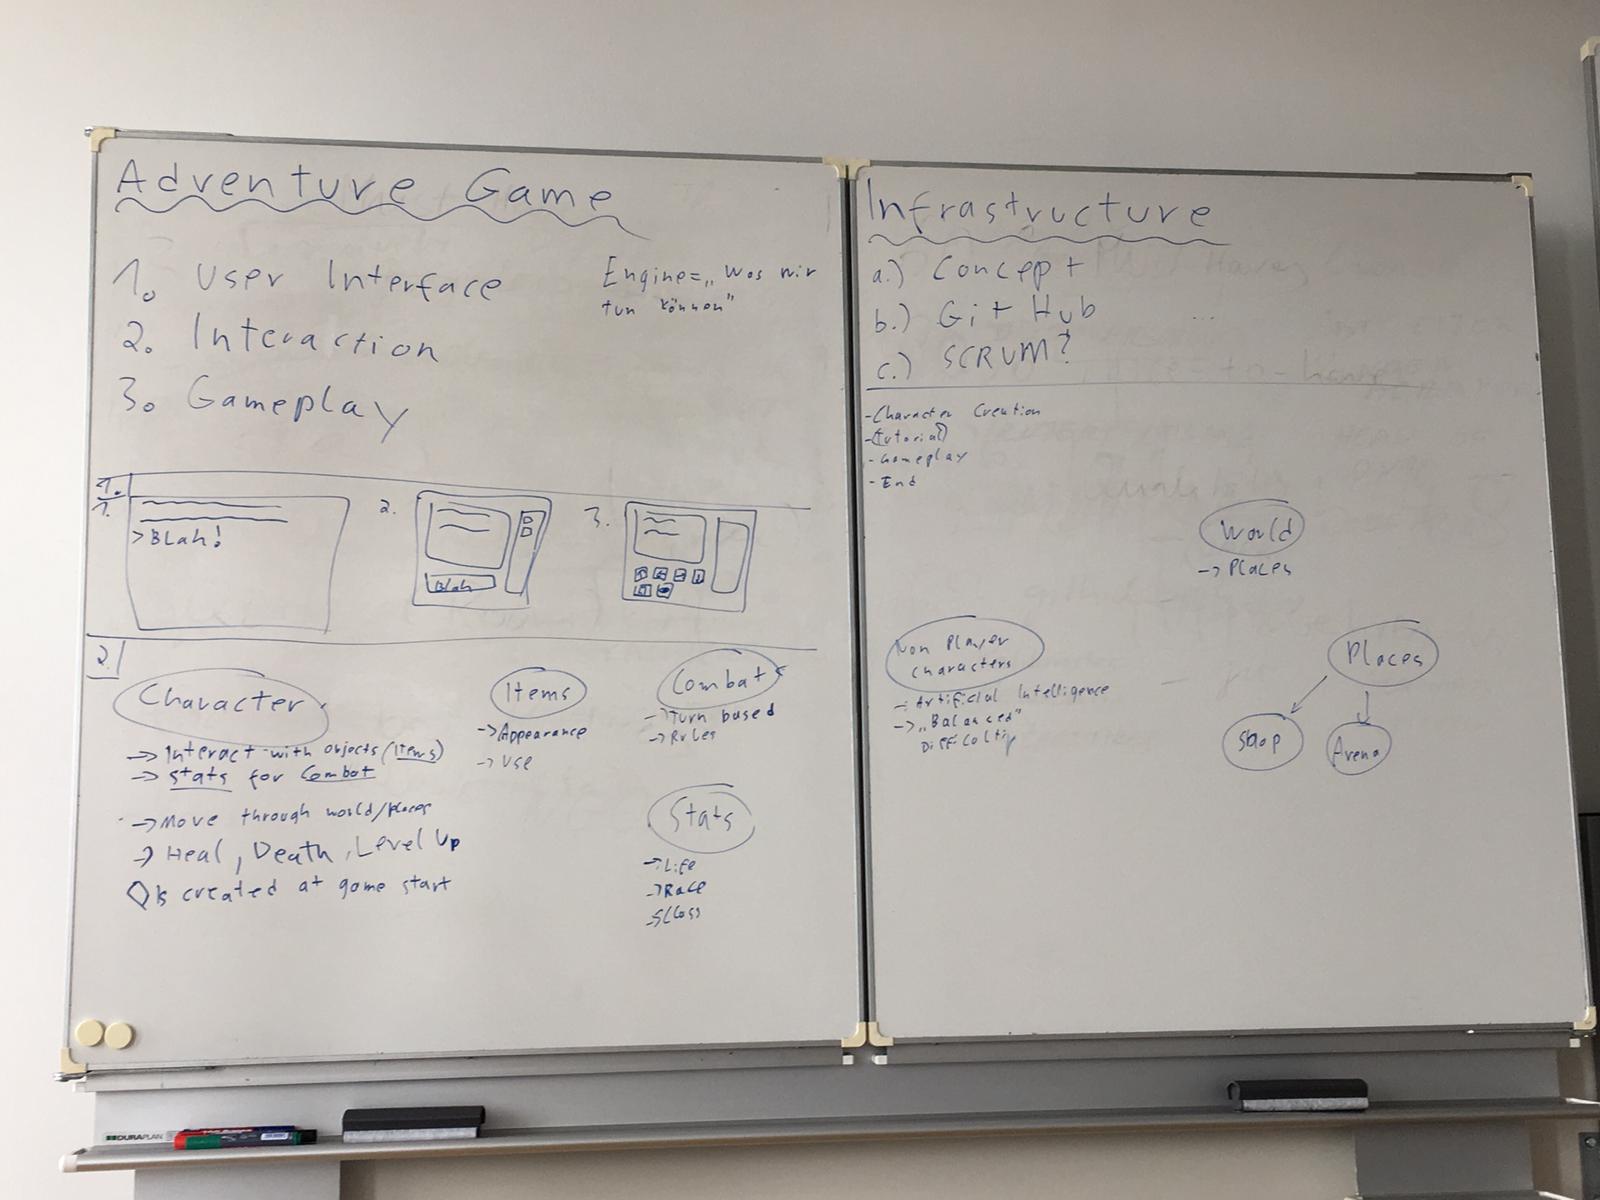 Adventure Game
1. User Interface
2. Interaction
3. Gameplay
Engine=„Was wir
tun können"
1.
1.
>Blah!
2.
Blah
3.
2.
Character
-> Interact with objects (Items)
-> Stats for Combat
-> Move through world/places
-> Heal, Death, Level Up
Is created at game start
Items
-> Appearance
-> Use
Combat
-> Turn based
-> Rules
Stats
-> Life
-> Race
-> Class
Infrastructure
a.) Concept
b.) GitHub ...
c.) SCRUM?
- Character Creation
- (Tutorial)
- Gameplay
- End
World
-> Places
Non Player
Characters
-> Artificial Intelligence
-> „Balanced"
Difficulty
Places
Shop
Arena
DURAPLAN